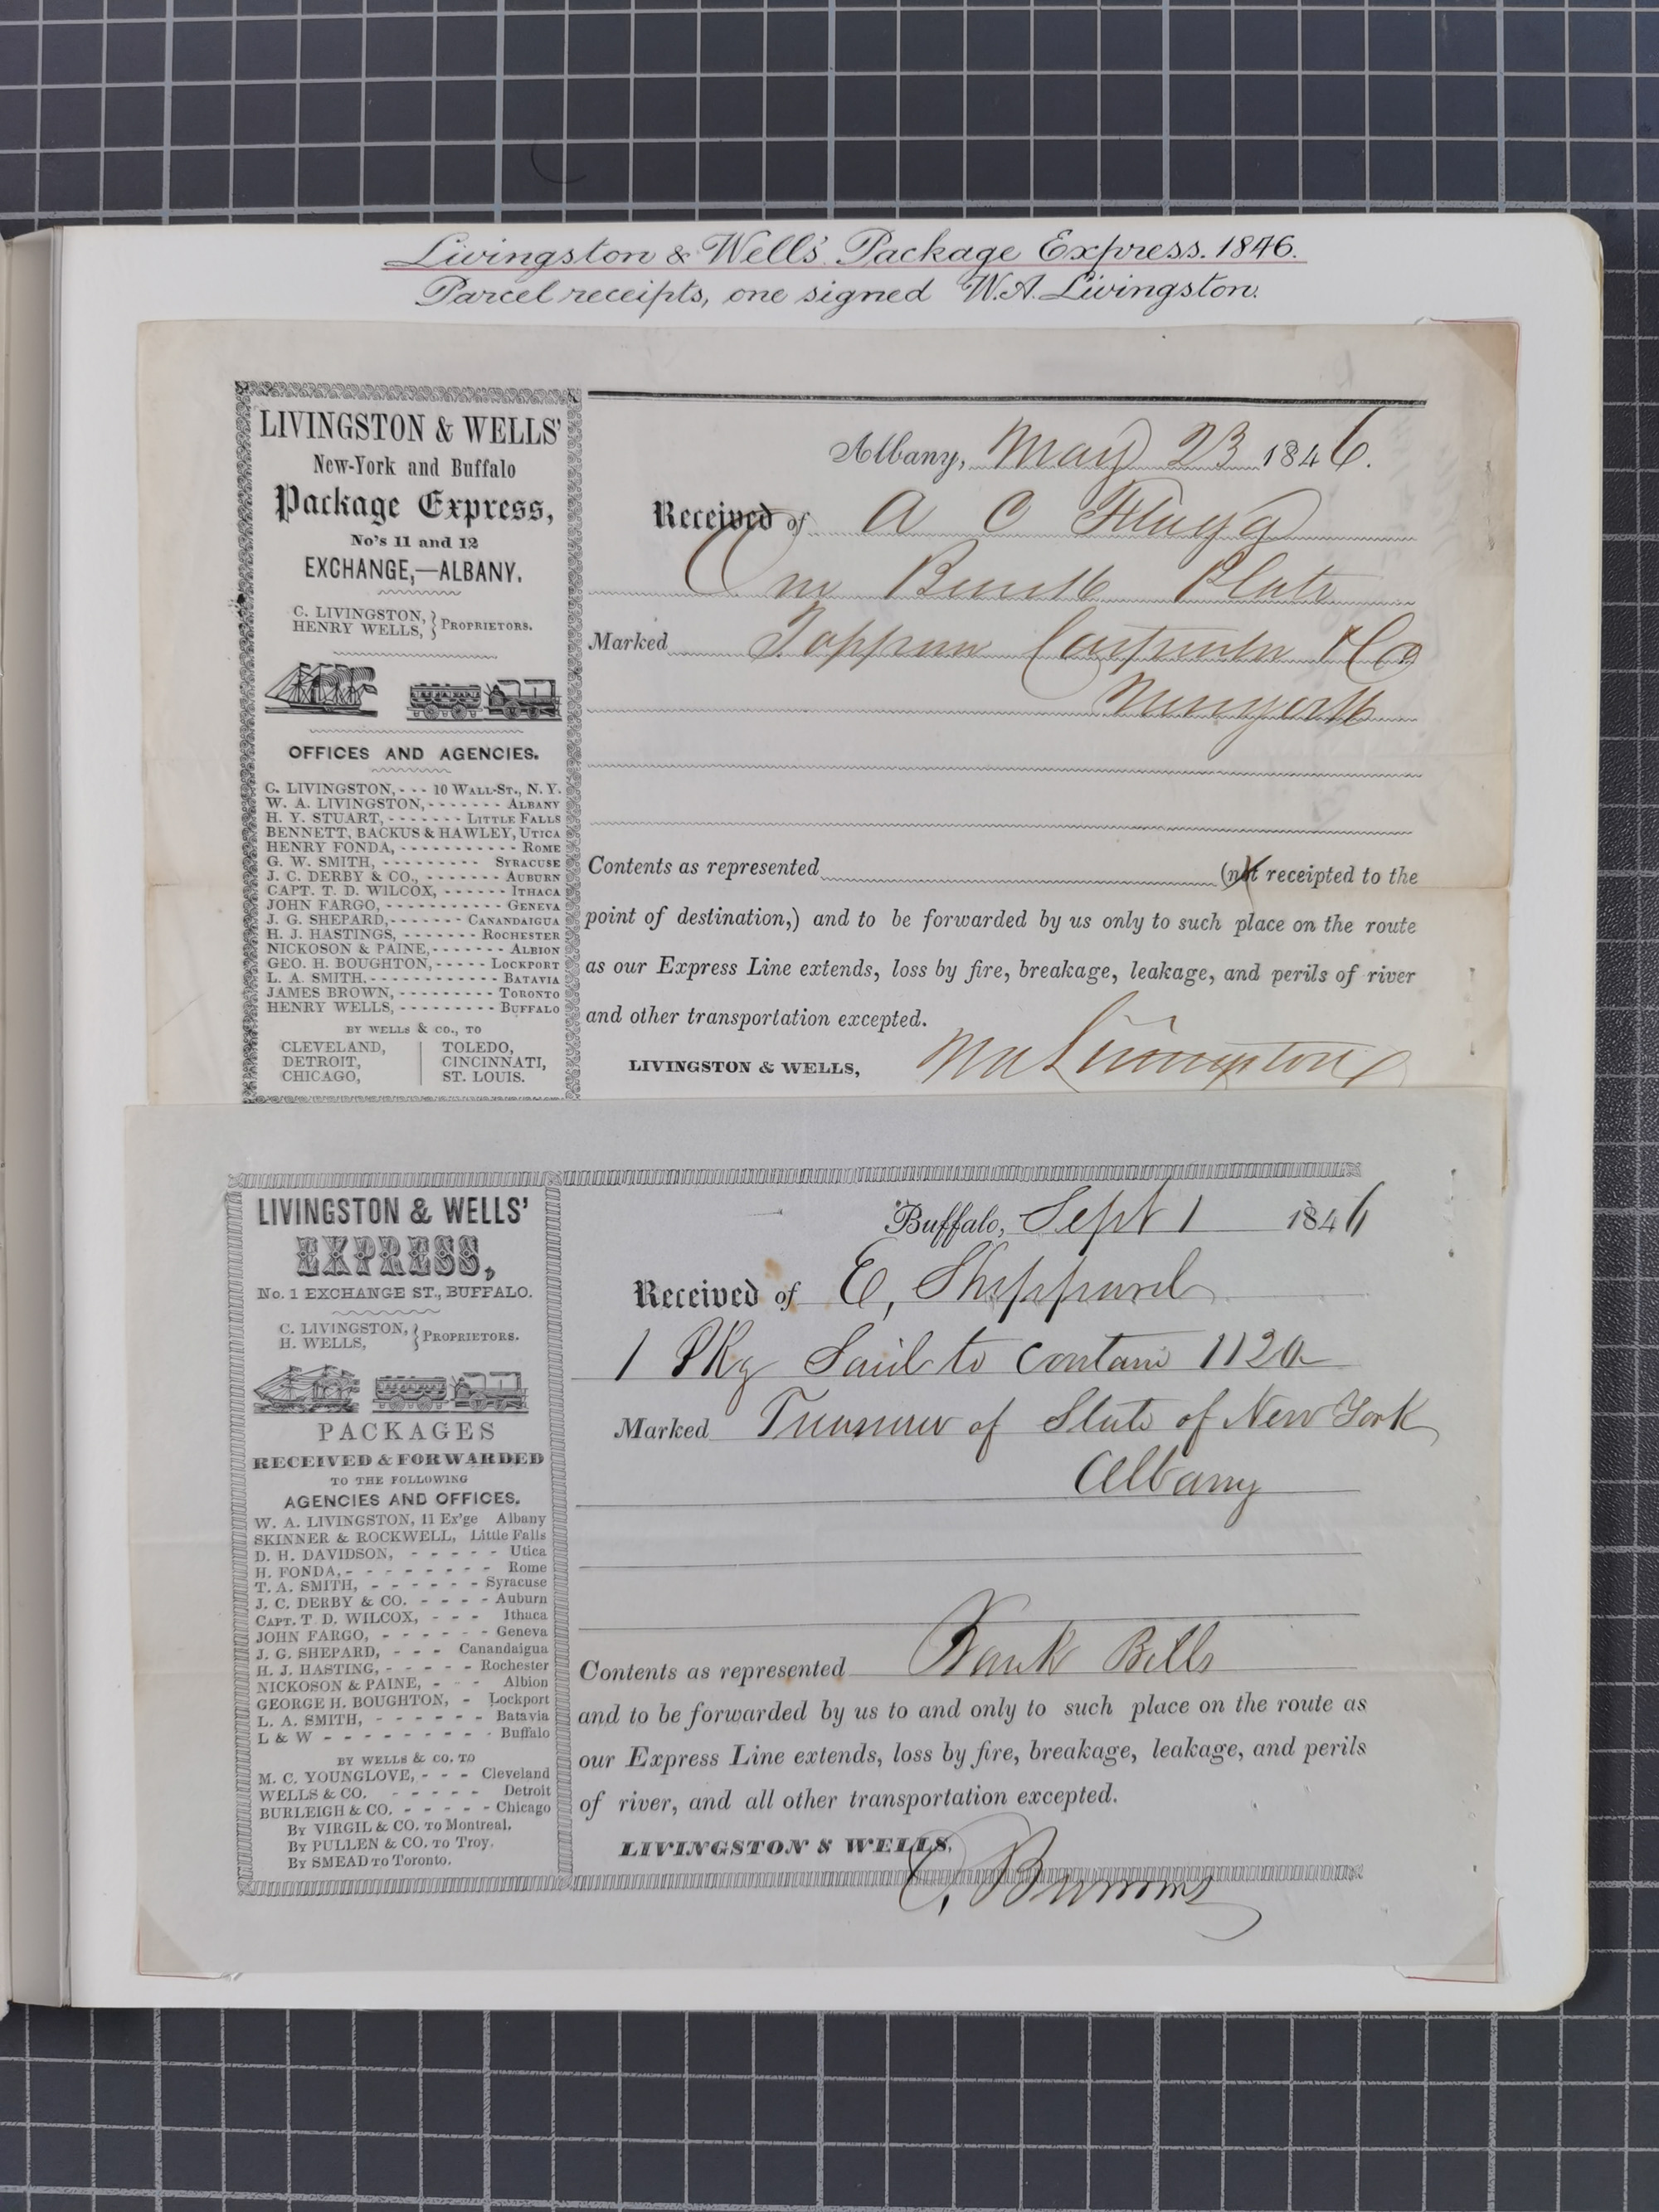 Livingston & Wells' Package Express. 1846.
Parcel receipts, one signed W.A. Livingston.
LIVINGSTON & WELLS'
New-York and Buffalo
Package Express,
No's 11 and 12
EXCHANGE,—ALBANY.
C. LIVINGSTON,
HENRY WELLS, } PROPRIETORS.
OFFICES AND AGENCIES.
C. LIVINGSTON, - - - 10 WALL-ST., N. Y.
W. A. LIVINGSTON, - - - - - - - ALBANY
H. Y. STUART, - - - - - - - LITTLE FALLS
BENNETT, BACKUS & HAWLEY, UTICA
HENRY FONDA, - - - - - - - - - - - ROME
G. W. SMITH, - - - - - - - - - SYRACUSE
J. C. DERBY & CO., - - - - - - - AUBURN
CAPT. T. D. WILCOX, - - - - - - ITHACA
JOHN FARGO, - - - - - - - - - - - GENEVA
J. G. SHEPARD, - - - - - - - CANANDAIGUA
H. J. HASTINGS, - - - - - - - ROCHESTER
NICKOSON & PAINE, - - - - - - - ALBION
GEO. H. BOUGHTON, - - - - - LOCKPORT
L. A. SMITH. - - - - - - - - - - - - BATAVIA
JAMES BROWN, - - - - - - - - - TORONTO
HENRY WELLS, - - - - - - - - - BUFFALO
BY WELLS & CO., TO
CLEVELAND, TOLEDO,
DETROIT, CINCINNATI,
CHICAGO, ST. LOUIS.
Albany, May 23 1846.
Received of A C Flagg
One Plate
Marked Toppan Carpenter & Co
Newyork
Contents as represented (not receipted to the
point of destination,) and to be forwarded by us only to such place on the route
as our Express Line extends, loss by fire, breakage, leakage, and perils of river
and other transportation excepted.
LIVINGSTON & WELLS, WA Livingston
LIVINGSTON & WELLS'
EXPRESS,
No. 1 EXCHANGE ST., BUFFALO.
C. LIVINGSTON,
H. WELLS, } PROPRIETORS.
PACKAGES
RECEIVED & FORWARDED
TO THE FOLLOWING
AGENCIES AND OFFICES.
W. A. LIVINGSTON, 11 Ex'ge Albany
SKINNER & ROCKWELL, Little Falls
D. H. DAVIDSON, - - - - - Utica
H. FONDA, - - - - - - - - Rome
T. A. SMITH, - - - - - - Syracuse
J. C. DERBY & CO. - - - - Auburn
CAPT. T D. WILCOX, - - - Ithaca
JOHN FARGO, - - - - - - Geneva
J. G. SHEPARD, - - - Canandaigua
H. J. HASTING, - - - - - Rochester
NICKOSON & PAINE, - - - Albion
GEORGE H. BOUGHTON, - Lockport
L. A. SMITH, - - - - - - Batavia
L & W - - - - - - - - - Buffalo
BY WELLS & CO. TO
M. C. YOUNGLOVE, - - - Cleveland
WELLS & CO. - - - - - Detroit
BURLEIGH & CO. - - - - - Chicago
By VIRGIL & CO. to Montreal.
By PULLEN & CO. to Troy.
By SMEAD to Toronto.
Buffalo, Sept 1 1846
Received of E, Sheppard
1 Pkg Said to contain 1120
Marked Treasurer of State of New York
Albany
Contents as represented Bank Bills
and to be forwarded by us to and only to such place on the route as
our Express Line extends, loss by fire, breakage, leakage, and perils
of river, and all other transportation excepted.
LIVINGSTON & WELLS,